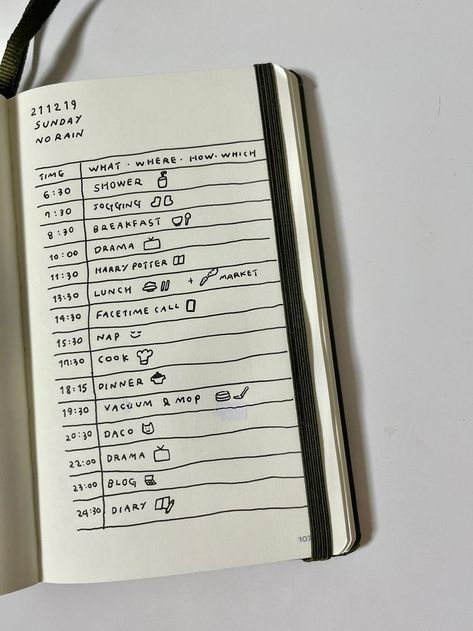 211219
SUNDAY
NO RAIN
TIME WHAT · WHERE · HOW · WHICH
6:30 SHOWER
7:30 JOGGING
8:30 BREAKFAST
10:00 DRAMA
11:30 HARRY POTTER
13:30 LUNCH + MARKET
14:30 FACETIME CALL
15:30 NAP
17:30 COOK
18:15 DINNER
19:30 VACUUM & MOP
20:30 DACO
22:00 DRAMA
23:00 BLOG
24:30 DIARY
107